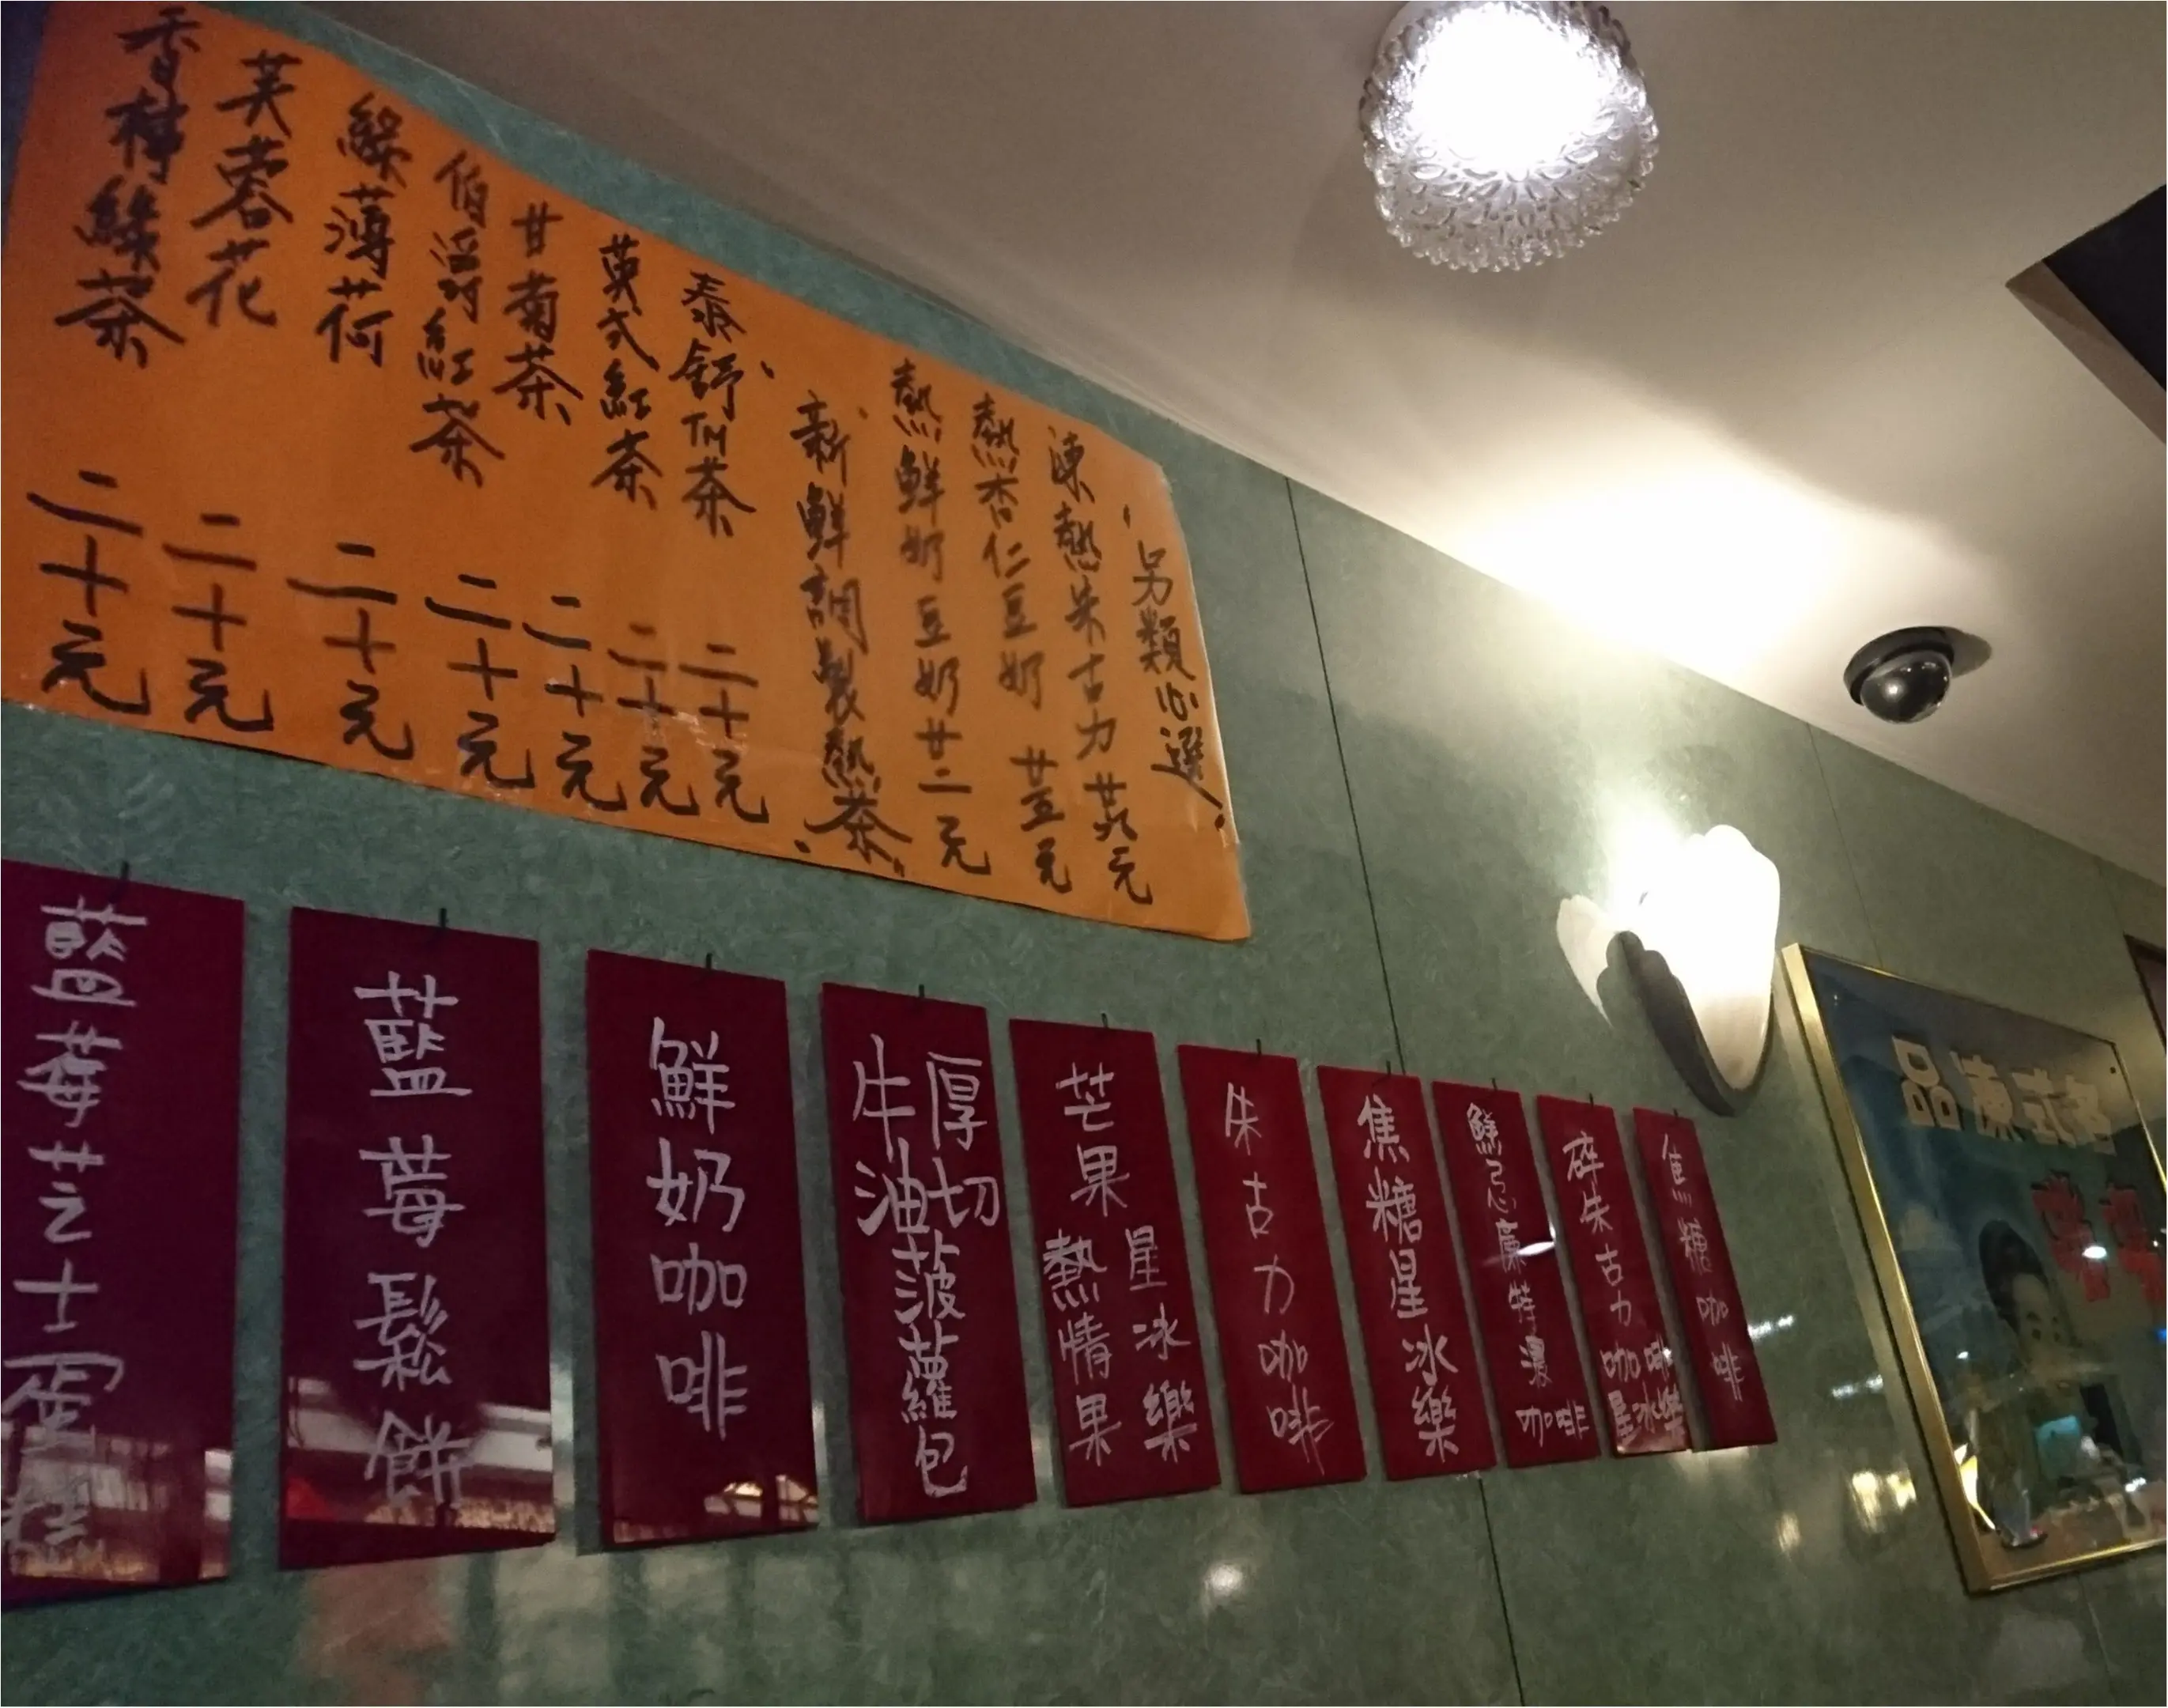 另類心選
凍熱朱古力 廿八元
熱杏仁豆奶 廿五元
熱鮮奶豆奶廿二元
新鮮調製熱茶
泰舒TM茶 二十元
英式紅茶 二十元
甘菊茶 二十元
伯爵紅茶 二十元
綠薄荷 二十元
芙蓉花 二十元
香檸綠茶 二十元
藍莓芝士蛋糕
藍莓鬆餅
鮮奶咖啡
厚切
牛油菠蘿包
芒果熱情果
星冰樂
朱古力咖啡
焦糖星冰樂
鮮忌廉特濃咖啡
碎朱古力咖啡星冰樂
焦糖咖啡
品凍式各